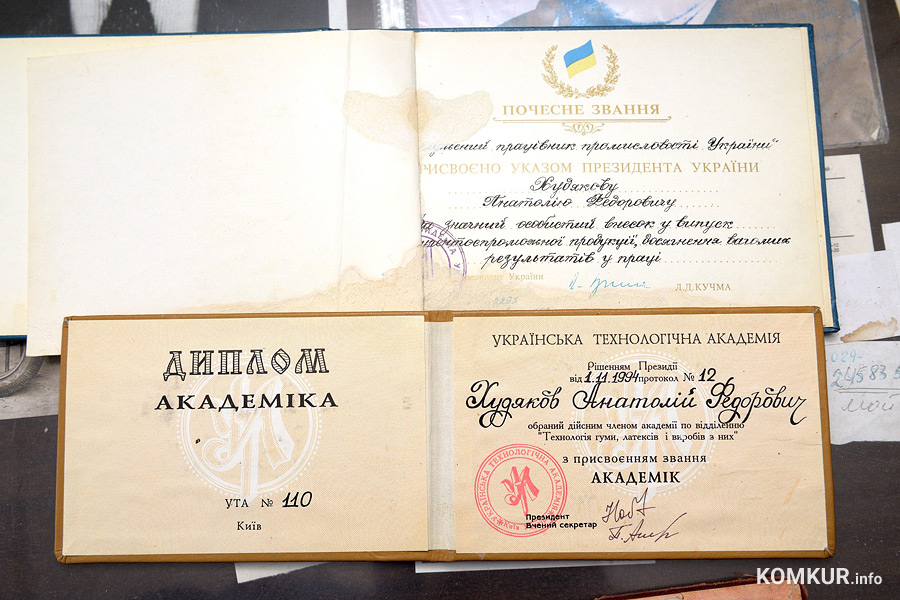 ПОЧЕСНЕ ЗВАННЯ
працівник промисловості України"
ПРИСВОЄНО УКАЗОМ ПРЕЗИДЕНТА УКРАЇНИ
Худякову
Анатолію Федоровичу
значний особистий внесок у випуск
продукції, досягнення вагомих
результатів у праці
України
Л.Д.КУЧМА
ДИПЛОМ
АКАДЕМІКА
УТА № 110
Київ
УКРАЇНСЬКА ТЕХНОЛОГІЧНА АКАДЕМІЯ
Рішенням Президії
від 1.11.1994 протокол № 12
Худяков Анатолій Федорович
обраний дійсним членом академії по відділенню
"Технологія гуми, латексів і виробів з них"
з присвоєнням звання
АКАДЕМІК
УКРАЇНСЬКА ТЕХНОЛОГІЧНА АКАДЕМІЯ
Київ
Президент
Вчений секретар
мой
KOMKUR.info